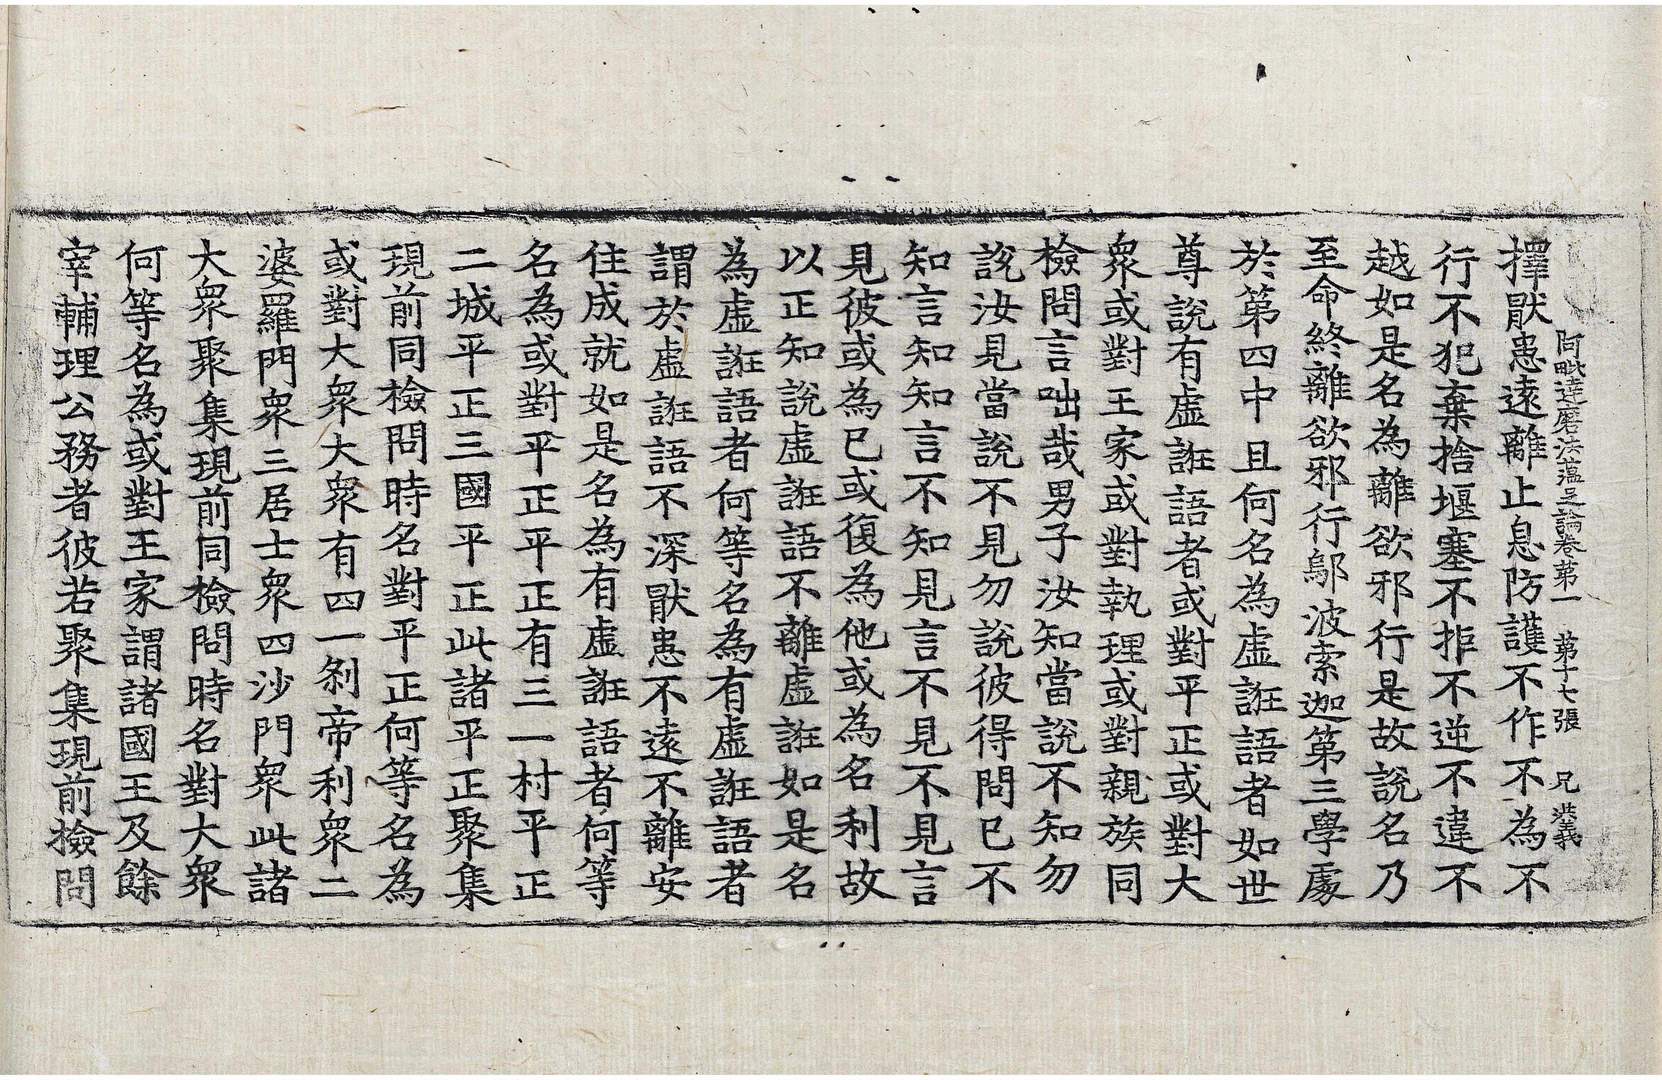 阿毗達磨法蘊足論卷第一　第十七張　兄　洪義
擇猒患遠離止息防護不作不為不
行不犯棄捨堰塞不拒不逆不違不
越如是名為離欲邪行是故說名乃
至命終離欲邪行鄔波索迦第三學處
於第四中且何名為虛誑語者如世
尊說有虛誑語者或對平正或對大
衆或對王家或對執理或對親族同
檢問言咄哉男子汝知當說不知勿
說汝見當說不見勿說彼得問已不
知言知知言不知見言不見不見言
見彼或為已或復為他或為名利故
以正知說虛誑語不離虛誑如是名
為虛誑語者何等名為有虛誑語者
謂於虛誑語不深猒患不遠不離安
住成就如是名為有虛誑語者何等
名為或對平正平正有三一村平正
二城平正三國平正此諸平正聚集
現前同檢問時名對平正何等名為
或對大衆大衆有四一刹帝利衆二
婆羅門衆三居士衆四沙門衆此諸
大衆聚集現前同檢問時名對大衆
何等名為或對王家謂諸國王及餘
宰輔理公務者彼若聚集現前檢問